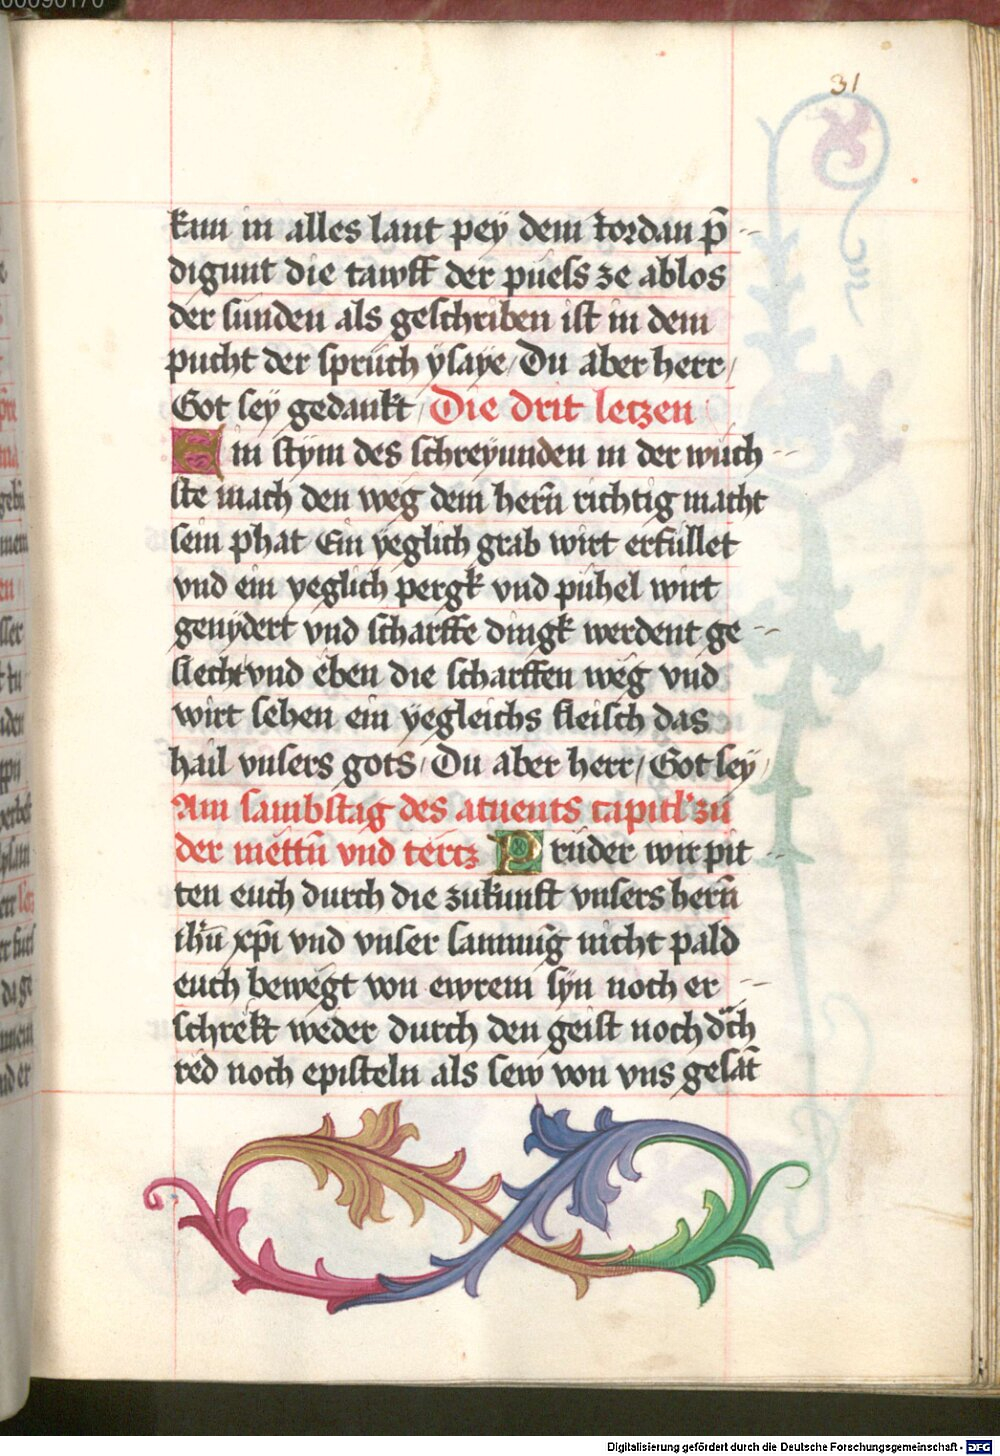 31
kam in alles lant pey dem Iordan p̄
digunt die tawff der puess ze ablos
der sunden als geschriben ist in dem
pucht der sprüch ysaye/ Du aber herr/
Got sey gedankt/ Die drit letzen
Ein stym des schreyunden in der wüch
ste mach den weg dem herñ richtig macht
sein phat Ein yeglich grab wirt erfüllet
vnd ein yeglich pergk vnd pühel wirt
genydert vnd scharffe dingk werdent ge
slecht vnd eben die scharffen weg vnd
wirt sehen ein yegleichs fleisch das
hail vnsers gots/ Du aber herr/ Got sey
Am sambstag des atuents capitl' zu
der mettñ vnd tertz Prüder wir pit
ten euch durch die zukunft vnsers herñ
ihū xp̄i vnd vnser samnūg nicht pald
euch bewegt von ewrem syn noch er
schrekt weder durch den geist noch dch
red noch episteln als sew von vns gesāt
Digitalisierung gefördert durch die Deutsche Forschungsgemeinschaft - DFG